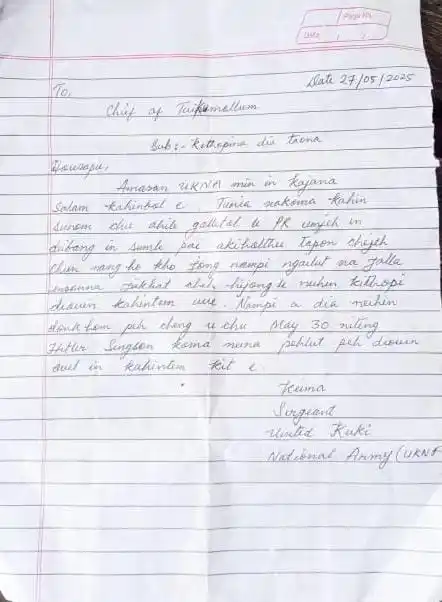 Page No.
Date / /
Date 27/05/2025
To,
Chief of Taikumollum
Sub:- Kithopina dia taona
Howsapu,
Amasan UKNA min in kajana
Salam kahinbol e. Tunia nakoma kahin
sunom chu ahile gollutal le PR umjeh in
in sumle pai akihollhu tapon chijeh
chun nang ho kho tong nampi ngailut na jalla
jakhat abih hijong le nuhen kithopi
diauin kahintem uve. Nampi a dia neuhen
donk hom peh chong u chu May 30 niteng
Hitler Singson koma neuna pehlut peh diauin
in kahintem kit e.
Keima
Sirgeant
United Kuki
National Army (UKNA